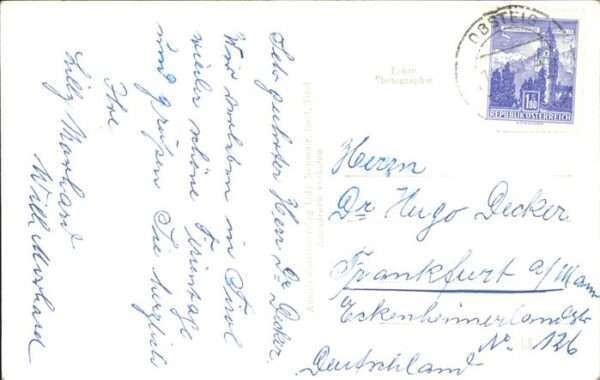 Sehr geehrter Herr Dr. Decker.
Wir verleben in Tirol
wieder schöne Ferientage
und grüßen Sie herzlich
Ihre
Lilly Marhard
Willi Marhard
Echte
Photographie
OBSTEIG
1.80
REPUBLIK ÖSTERREICH
Herrn
Dr. Hugo Decker
Frankfurt a/Main
Eckenheimerlandstr.
Nr. 126
Deutschland